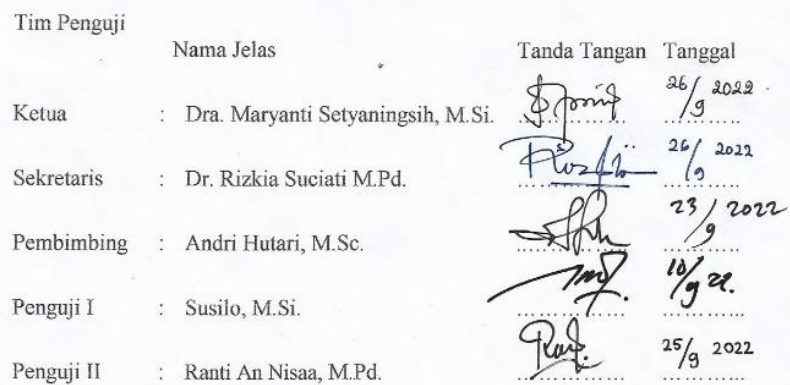 Tim Penguji
Nama Jelas Tanda Tangan Tanggal
Ketua : Dra. Maryanti Setyaningsih, M.Si. 26/9 2022
Sekretaris : Dr. Rizkia Suciati M.Pd. 26/9 2022
Pembimbing : Andri Hutari, M.Sc. 23/9 2022
Penguji I : Susilo, M.Si. 10/9 22.
Penguji II : Ranti An Nisaa, M.Pd. 25/9 2022